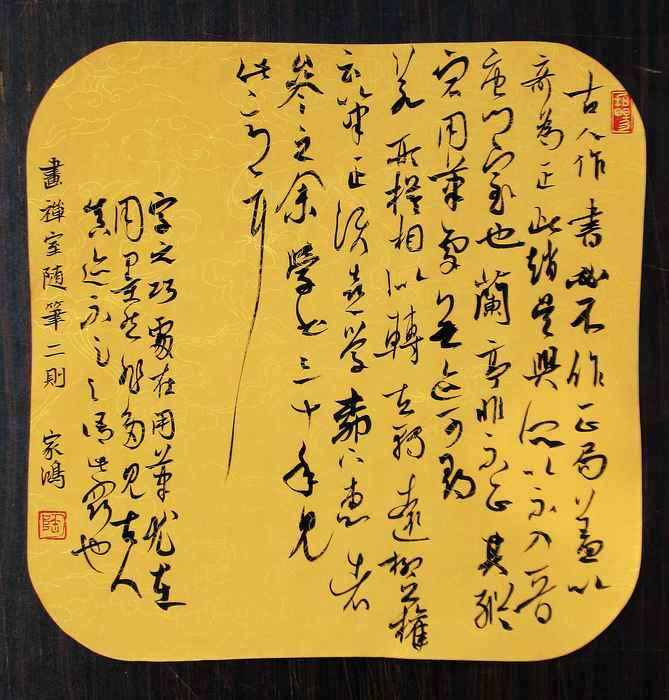 古人作書必不作正局蓋以
奇為正此趙吳興所以不入晉
唐門室也蘭亭非不正其縱
宕用筆處無迹可尋
若形模相似轉去轉遠柳公權
云筆正須善學柳下惠者
參之余學書三十年見
此意耳
字之巧處在用筆尤在
用墨然非多見古人
真迹不足與語此竅也
畫禪室隨筆二則 家鴻
陶